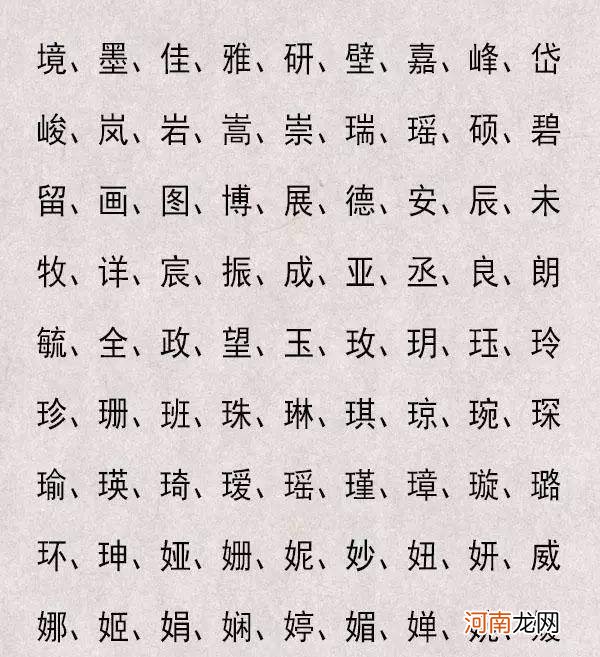 境、墨、佳、雅、研、壁、嘉、峰、岱
峻、岚、岩、嵩、崇、瑞、瑶、硕、碧
留、画、图、博、展、德、安、辰、未
牧、详、宸、振、成、亚、丞、良、朗
毓、全、政、望、玉、玫、玥、珏、玲
珍、珊、班、珠、琳、琪、琼、琬、琛
瑜、瑛、琦、瑷、瑶、瑾、璋、璇、璐
环、珅、娅、姗、妮、妙、妞、妍、威
娜、姬、娟、娴、婷、媚、婵、
河南龙网